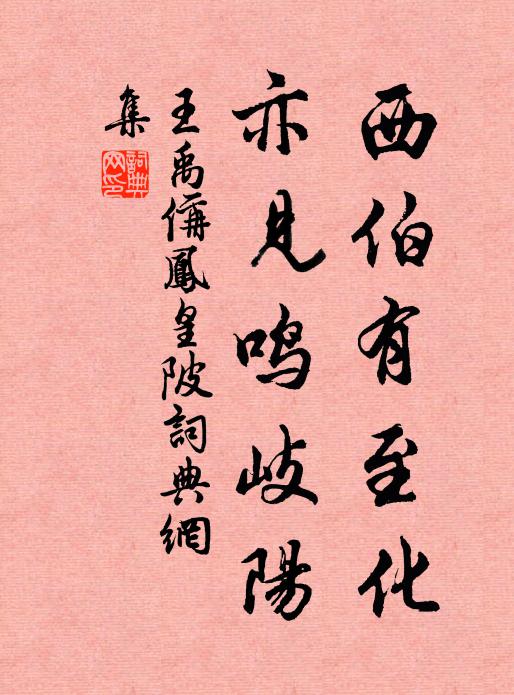 西伯有至化
亦見鳴岐陽
王禹偁鳳皇陂詞典網
集
詞典
网印